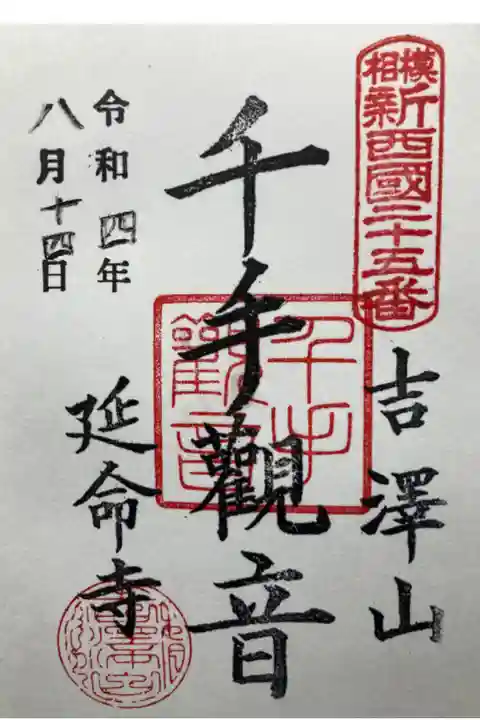 相模
新西國三十五番
吉澤山
千手觀音
千手
觀音
延命寺
令和四年
八月十四日